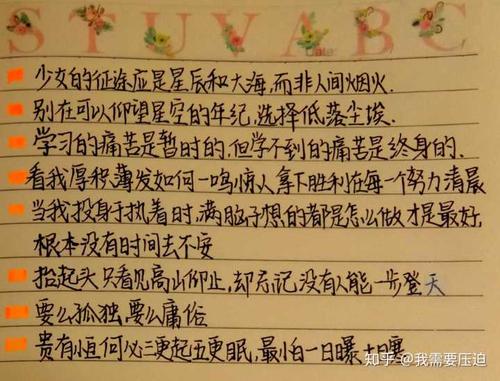 S T U V A B C
Date:
少女的征途应是星辰和大海,而非人间烟火.
别在可以仰望星空的年纪,选择低落尘埃.
学习的痛苦是暂时的.但学不到的痛苦是终身的.
看我厚积薄发如何一鸣惊人拿下胜利在每一个努力清晨
当我投身于执着时,满脑子想的都是怎么做才是最好,
根本没有时间去不安
抬起头只看见高山仰止,却忘记没有人能一步登天
要么孤独要么庸俗
贵有恒何必三更起五更眠,最怕一日曝十日寒
知乎 @我需要压迫